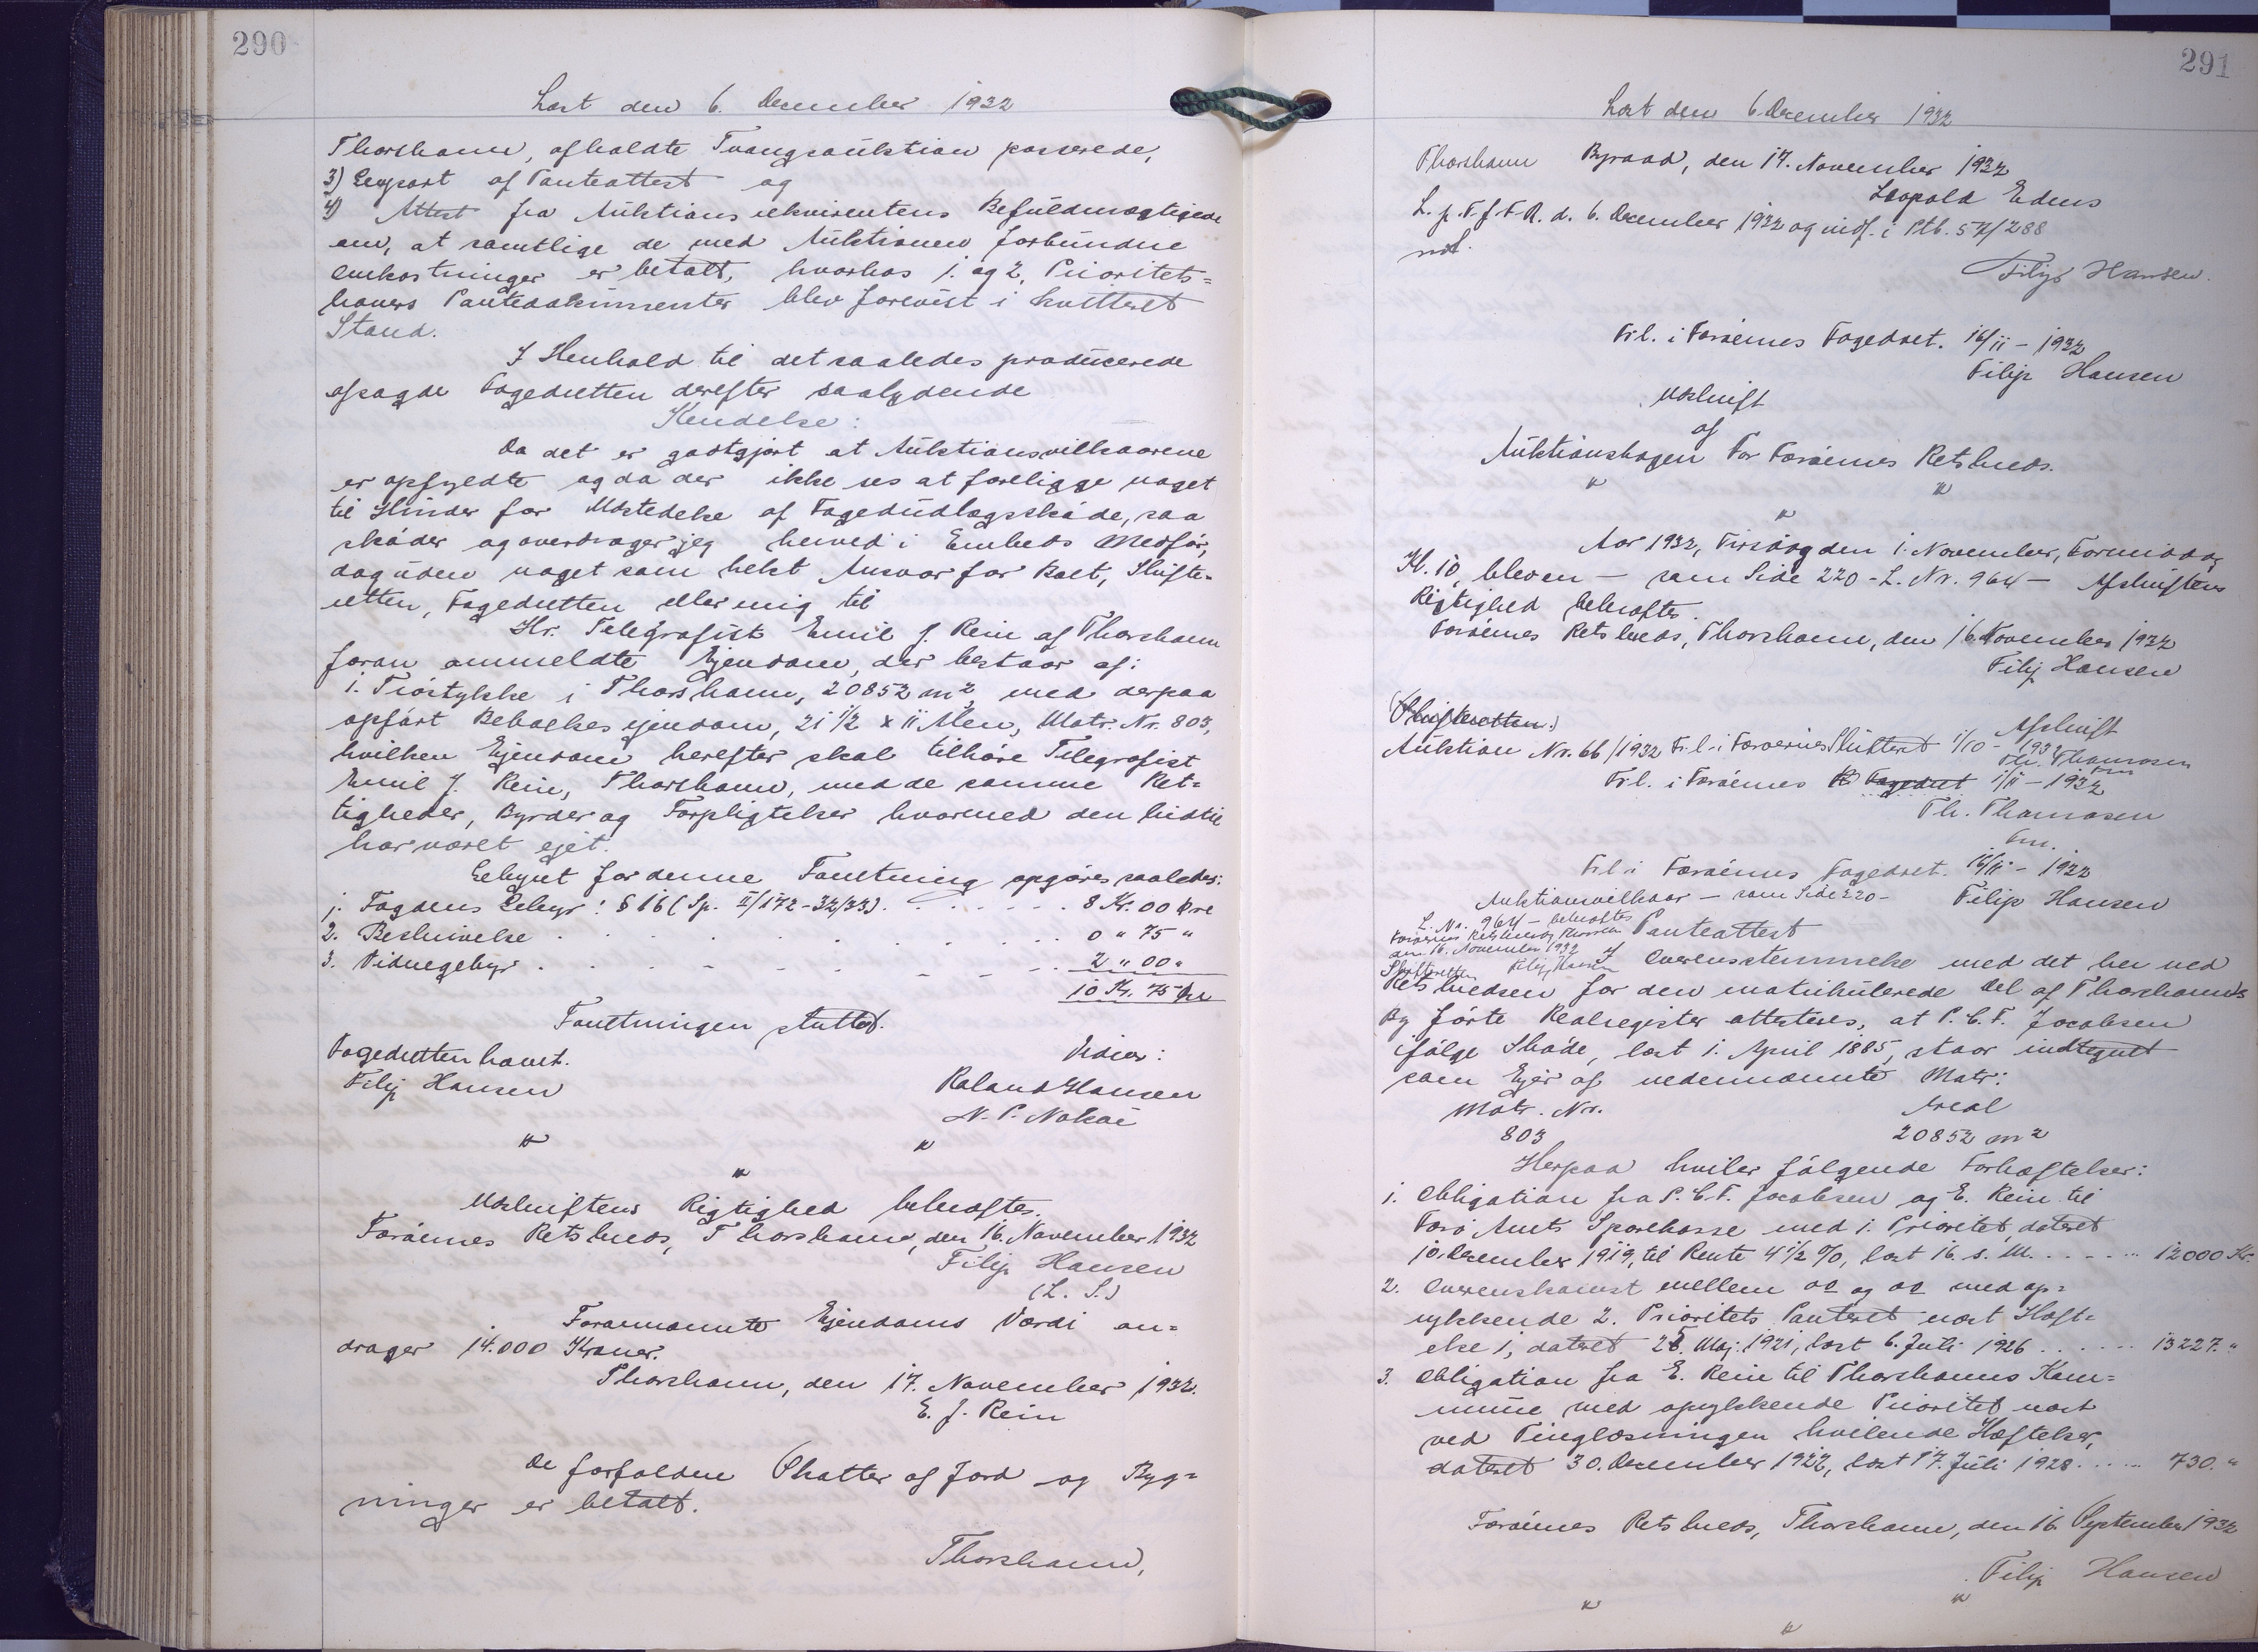 290
Læst den 6. December 1932
Thorshavn, afholdte Tvangsauktion passerede,
3) Genpart af Panteattest og
4) Attest fra Auktionsrekvirentens Befuldmægtigede
om, at samtlige de med Auktionen forbundne
Omkostninger er betalt, hvorhos 1. og 2. Prioritets=
havers Pantedokumenter blev forevist i kvitteret
Stand.
I Henhold til det saaledes producerede
afsagde Fogedretten derefter saalydende
Kendelse:
Da det er godtgjort at Auktionsvilkaarene
er opfyldte og da der ikke ses at foreligge noget
til Hinder for Udstedelse af Fogedudlægsskøde, saa
skøder og overdrager jeg herved i Embeds Medfør,
dog uden noget som helst Ansvar for Boet, Skifte-
retten, Fogedretten eller mig til
Hr. Telegrafist Emil J. Rein af Thorshavn
foran ommeldte Ejendom, der bestaar af:
1. Trøstykke i Thorshavn, 20852 m2, med derpaa
opført Beboelsesejendom, 21 1/2 x 11 Alen, Matr. Nr. 803,
hvilken Ejendom herefter skal tilhøre Telegrafist
Emil J. Rein, Thorshavn, med de samme Ret=
tigheder, Byrder og Forpligtelser hvormed den hidtil
har været ejet.
Gebyret for denne Forretning opgøres saaledes:
1. Fogdens Gebyr: § 16 (Sp. II/172-32/33) . . . . . . 8 Kr. 00 Øre
2. Beskrivelse . . . . . . . . . 0 " 75 "
3. Vidnegebyr . . . . . . . . . 2 " 00 "
10 Kr. 75 Øre
Forretningen sluttet.
Fogedretten hævet. Vidner:
Filip Hansen Roland Hansen
N. P.
" "
"
Udskriftens Rigtighed bekræftes.
Færøernes Retskreds, Thorshavn, den 16. November 1932
Filip Hansen
(L. S.)
Forannævnte Ejendoms Værdi an=
drager 14.000 Kroner.
Thorshavn, den 17. November 1932.
E. J. Rein
De forfaldne Skatter af Jord og Byg=
ninger er betalt.
Thorshavn,
291
Læst den 6. December 1932
Thorshavn Byraad, den 17. November 1932
Leopold
L. p. T. f. F. R. d. 6. December 1932 og indf. i Ptb. 57/288
Filip Hansen.
Frl. i Færøernes Fogedret. 16/11 - 1932
Filip Hansen
Udskrift
af
Auktionsbogen for Færøernes Retskreds.
" "
"
Aar 1932, Tirsdag den 1. November, Formiddag
Kl. 10, blev en - som Side 220 - L. Nr. 964 - Afskriftens
Rigtighed bekræftes.
Færøernes Retskreds, Thorshavn, den 16. November 1932
Filip Hansen
(Skifteretten.) Afskrift
Auktion Nr. 66/1932 Frl. i Færøernes Skifteret 1/10 - 1932
Th. Thomasen
fm
Frl. i Færøernes Fogedret 1/11 - 1932
Th. Thomasen
fm.
Frl. i Færøernes Fogedret. 16/11 - 1932
Auktionsvilkaar - som Side 220 - Filip Hansen
L. Nr. 964 - bekræftes
Færøernes Retskreds, Thorshavn
den 16. November 1932
Filip Hansen
Skifteretten
Panteattest
I Overensstemmelse med det her ved
Retskredsen for den matrikulerede Del af Thorshavns
By førte Realregister attesteres, at P. C. F. Jacobsen
ifølge Skøde, læst 1. April 1885, staar indtegnet
som Ejer af nedennævnte Matr:
Matr. Nr. Areal
803 20852 m2
Herpaa hviler følgende Forhæftelser:
1. Obligation fra P. C. F. Jacobsen og E. Rein til
Færø Amts Sparekasse med 1. Prioritet, dateret
10. December 1919, til Rente 4 1/2 %, læst 16. s. M. . . . . . . 12000 Kr.
2. Overenskomst mellem do og do med op=
rykkende 2. Prioritets Panteret næst Hæft=
else 1, dateret 25. Maj 1921, læst 6. Juli 1926 . . . . . . 13227. "
3. Obligation fra E. Rein til Thorshavns Kom=
mune med oprykkende Prioritet næst
ved Tinglæsningen hvilende Hæftelser,
dateret 30. December 1922, læst 17. Juli 1928 . . . . . 730. "
Færøernes Retskreds, Thorshavn, den 16. September 1932
Filip Hansen
" "
"